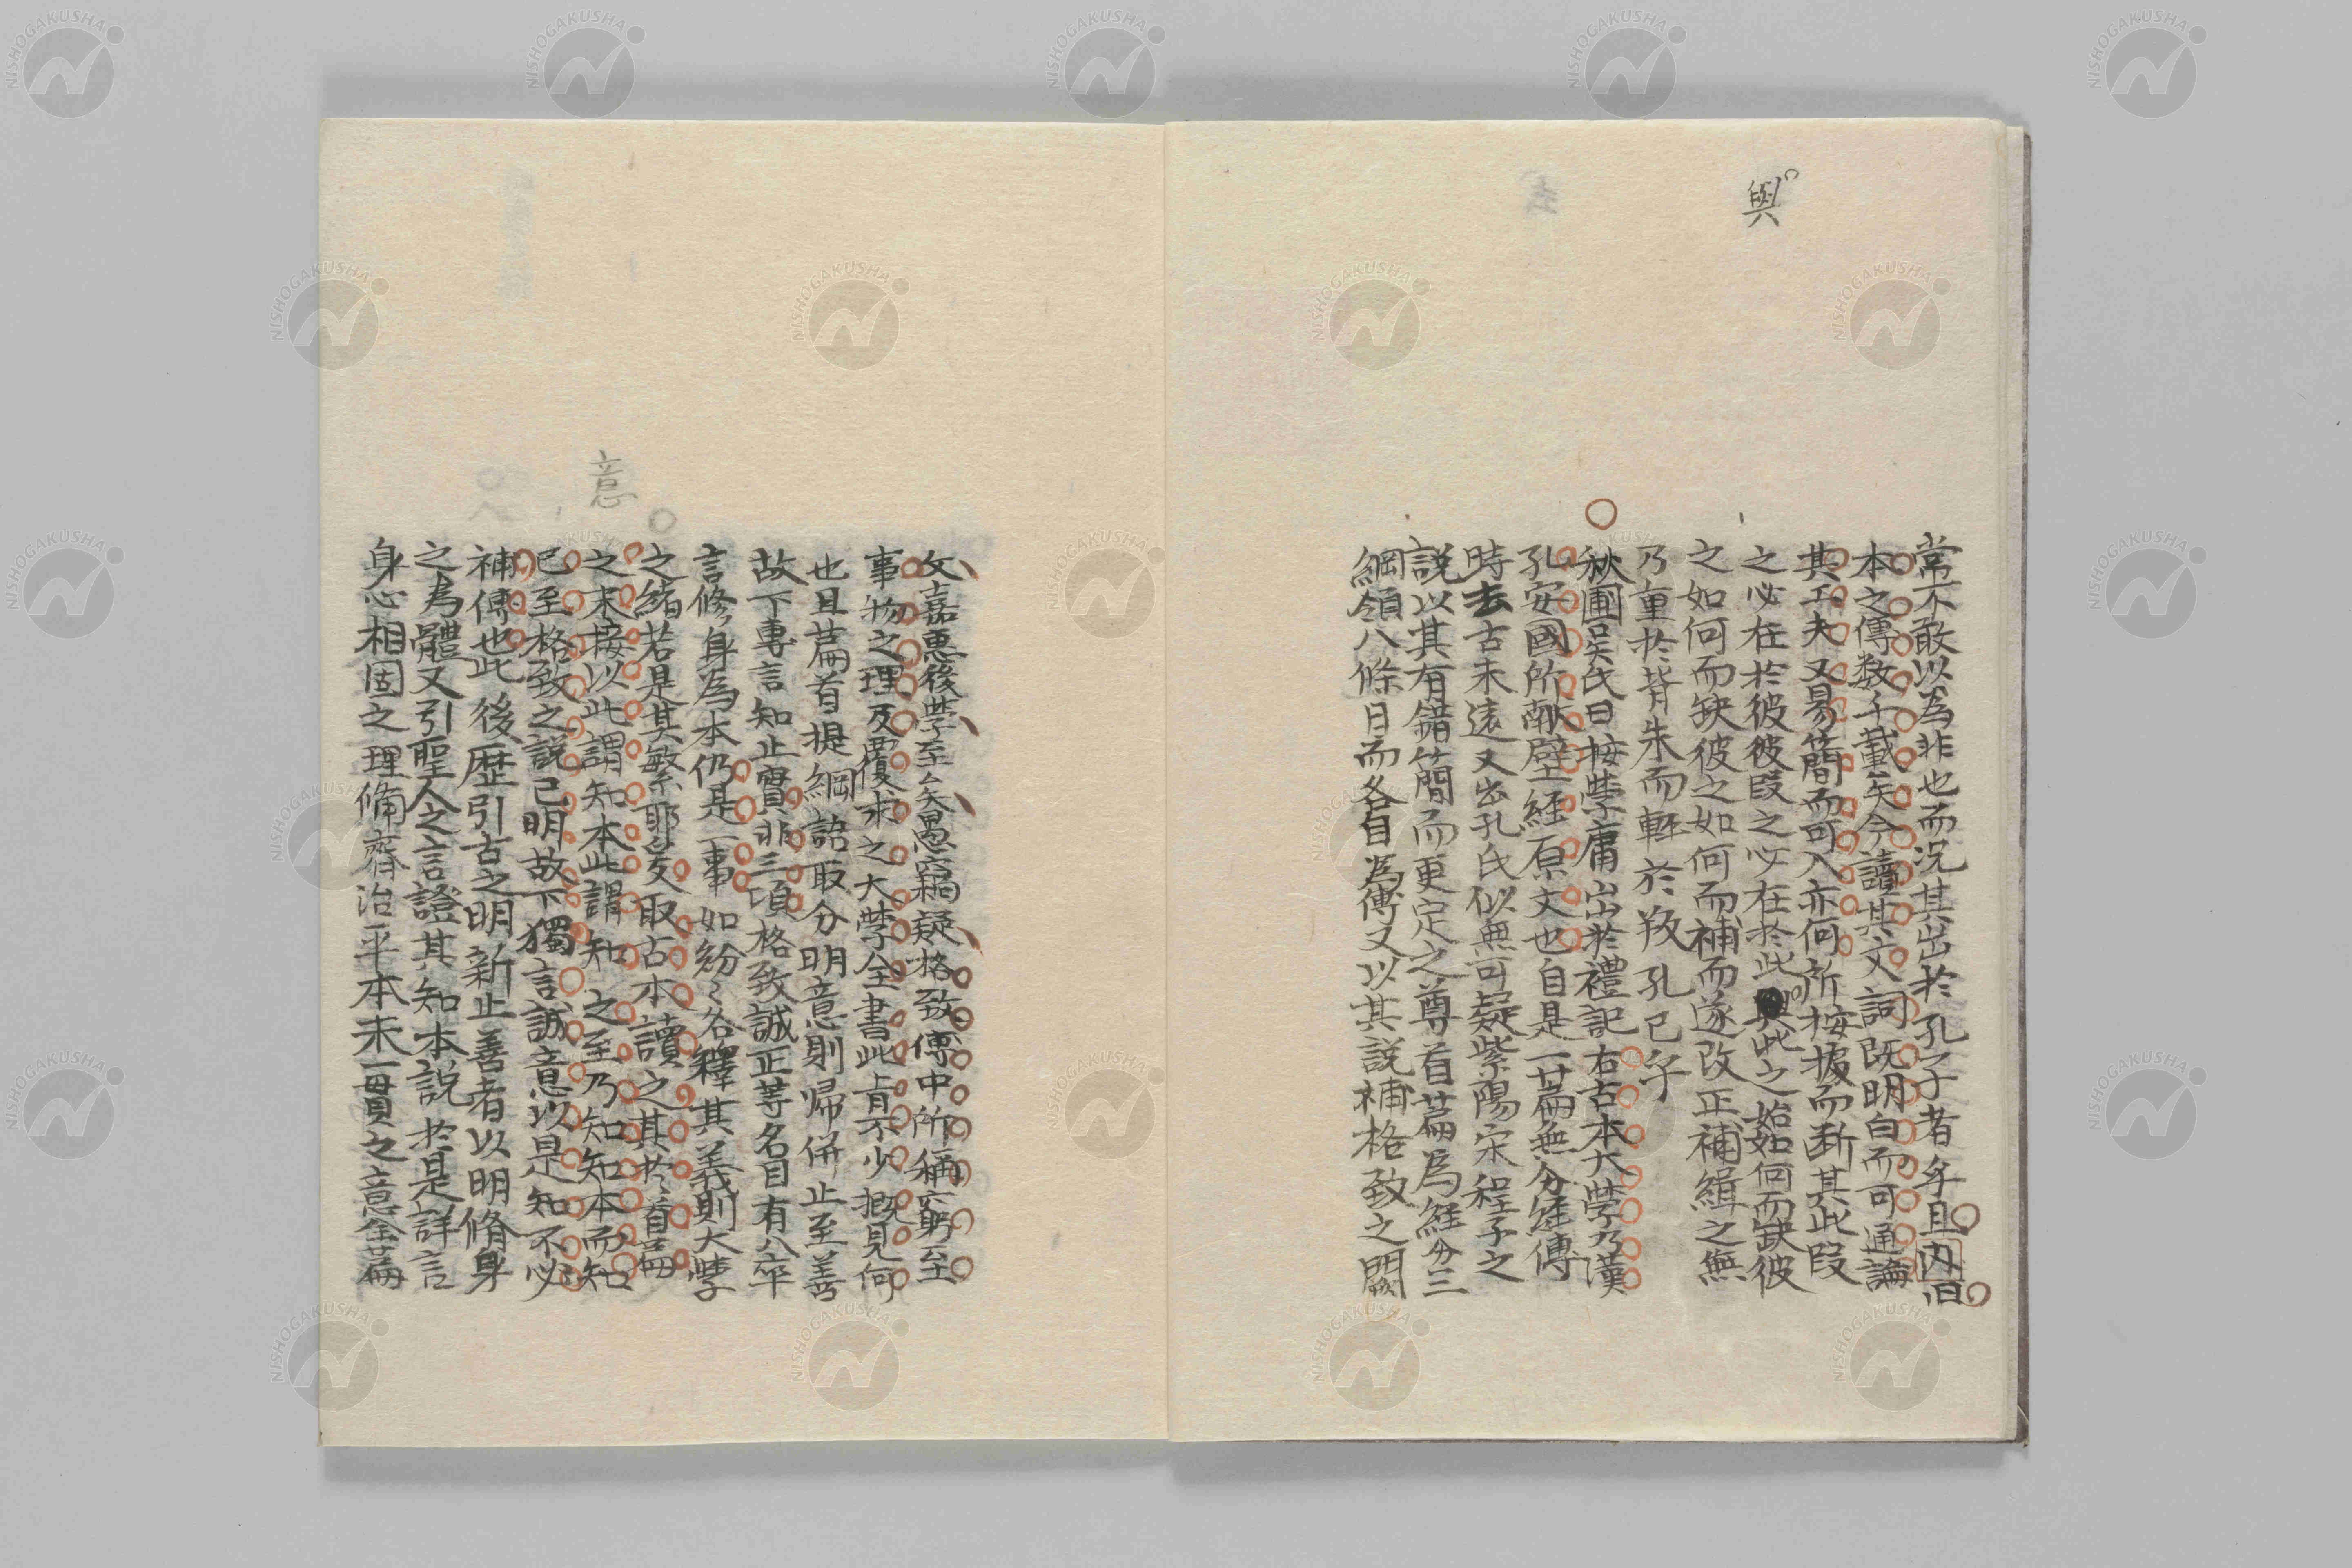 與
常不敢以為非也而况其出於孔子者乎且内旧
本之傳数千載矣今讀其文詞既明白而可通論
其工夫又易簡而可入亦何所按據而断其此段
之必在於彼彼段之必在於此與此之始如何而缺彼
之如何而缺彼之如何而補而遂改正補緝之無
乃重於背朱而軽於叛孔已乎
秋圃吴氏曰按學庸出於禮記右古本大學乃漢
孔安國所献壁経原文也自是一廿篇無分経傳
時去古未遠又出孔氏似無可疑紫陽宋程子之
説以其有錯簡而更定之尊首篇為経分三
綱領八條目而各自為傳又以其説補格致之闕
意
文嘉惠後學至矣愚竊疑格致傳中所稱窮至
事物之理及覆求之大學全書此旨不少概見何
也且篇首提綱語取分明意則帰併止至善
故下專言知止實非三項格致誠正等名目有八率
言修身為本仍是一事如紛〻名釋其義則大學
之緒若是其繁耶爰取古本讀之其於首篇
之末接以此謂知本此謂知之至乃知知本而知
已至格致之説已明故下獨言誠意以是知不必
補傳也此後歴引古之明新止善者以明脩身
之為體又引聖人之言證其知本説於是詳言
身心相固之理脩齊治平本末一貫之意全篇
NISHOGAKUSHA